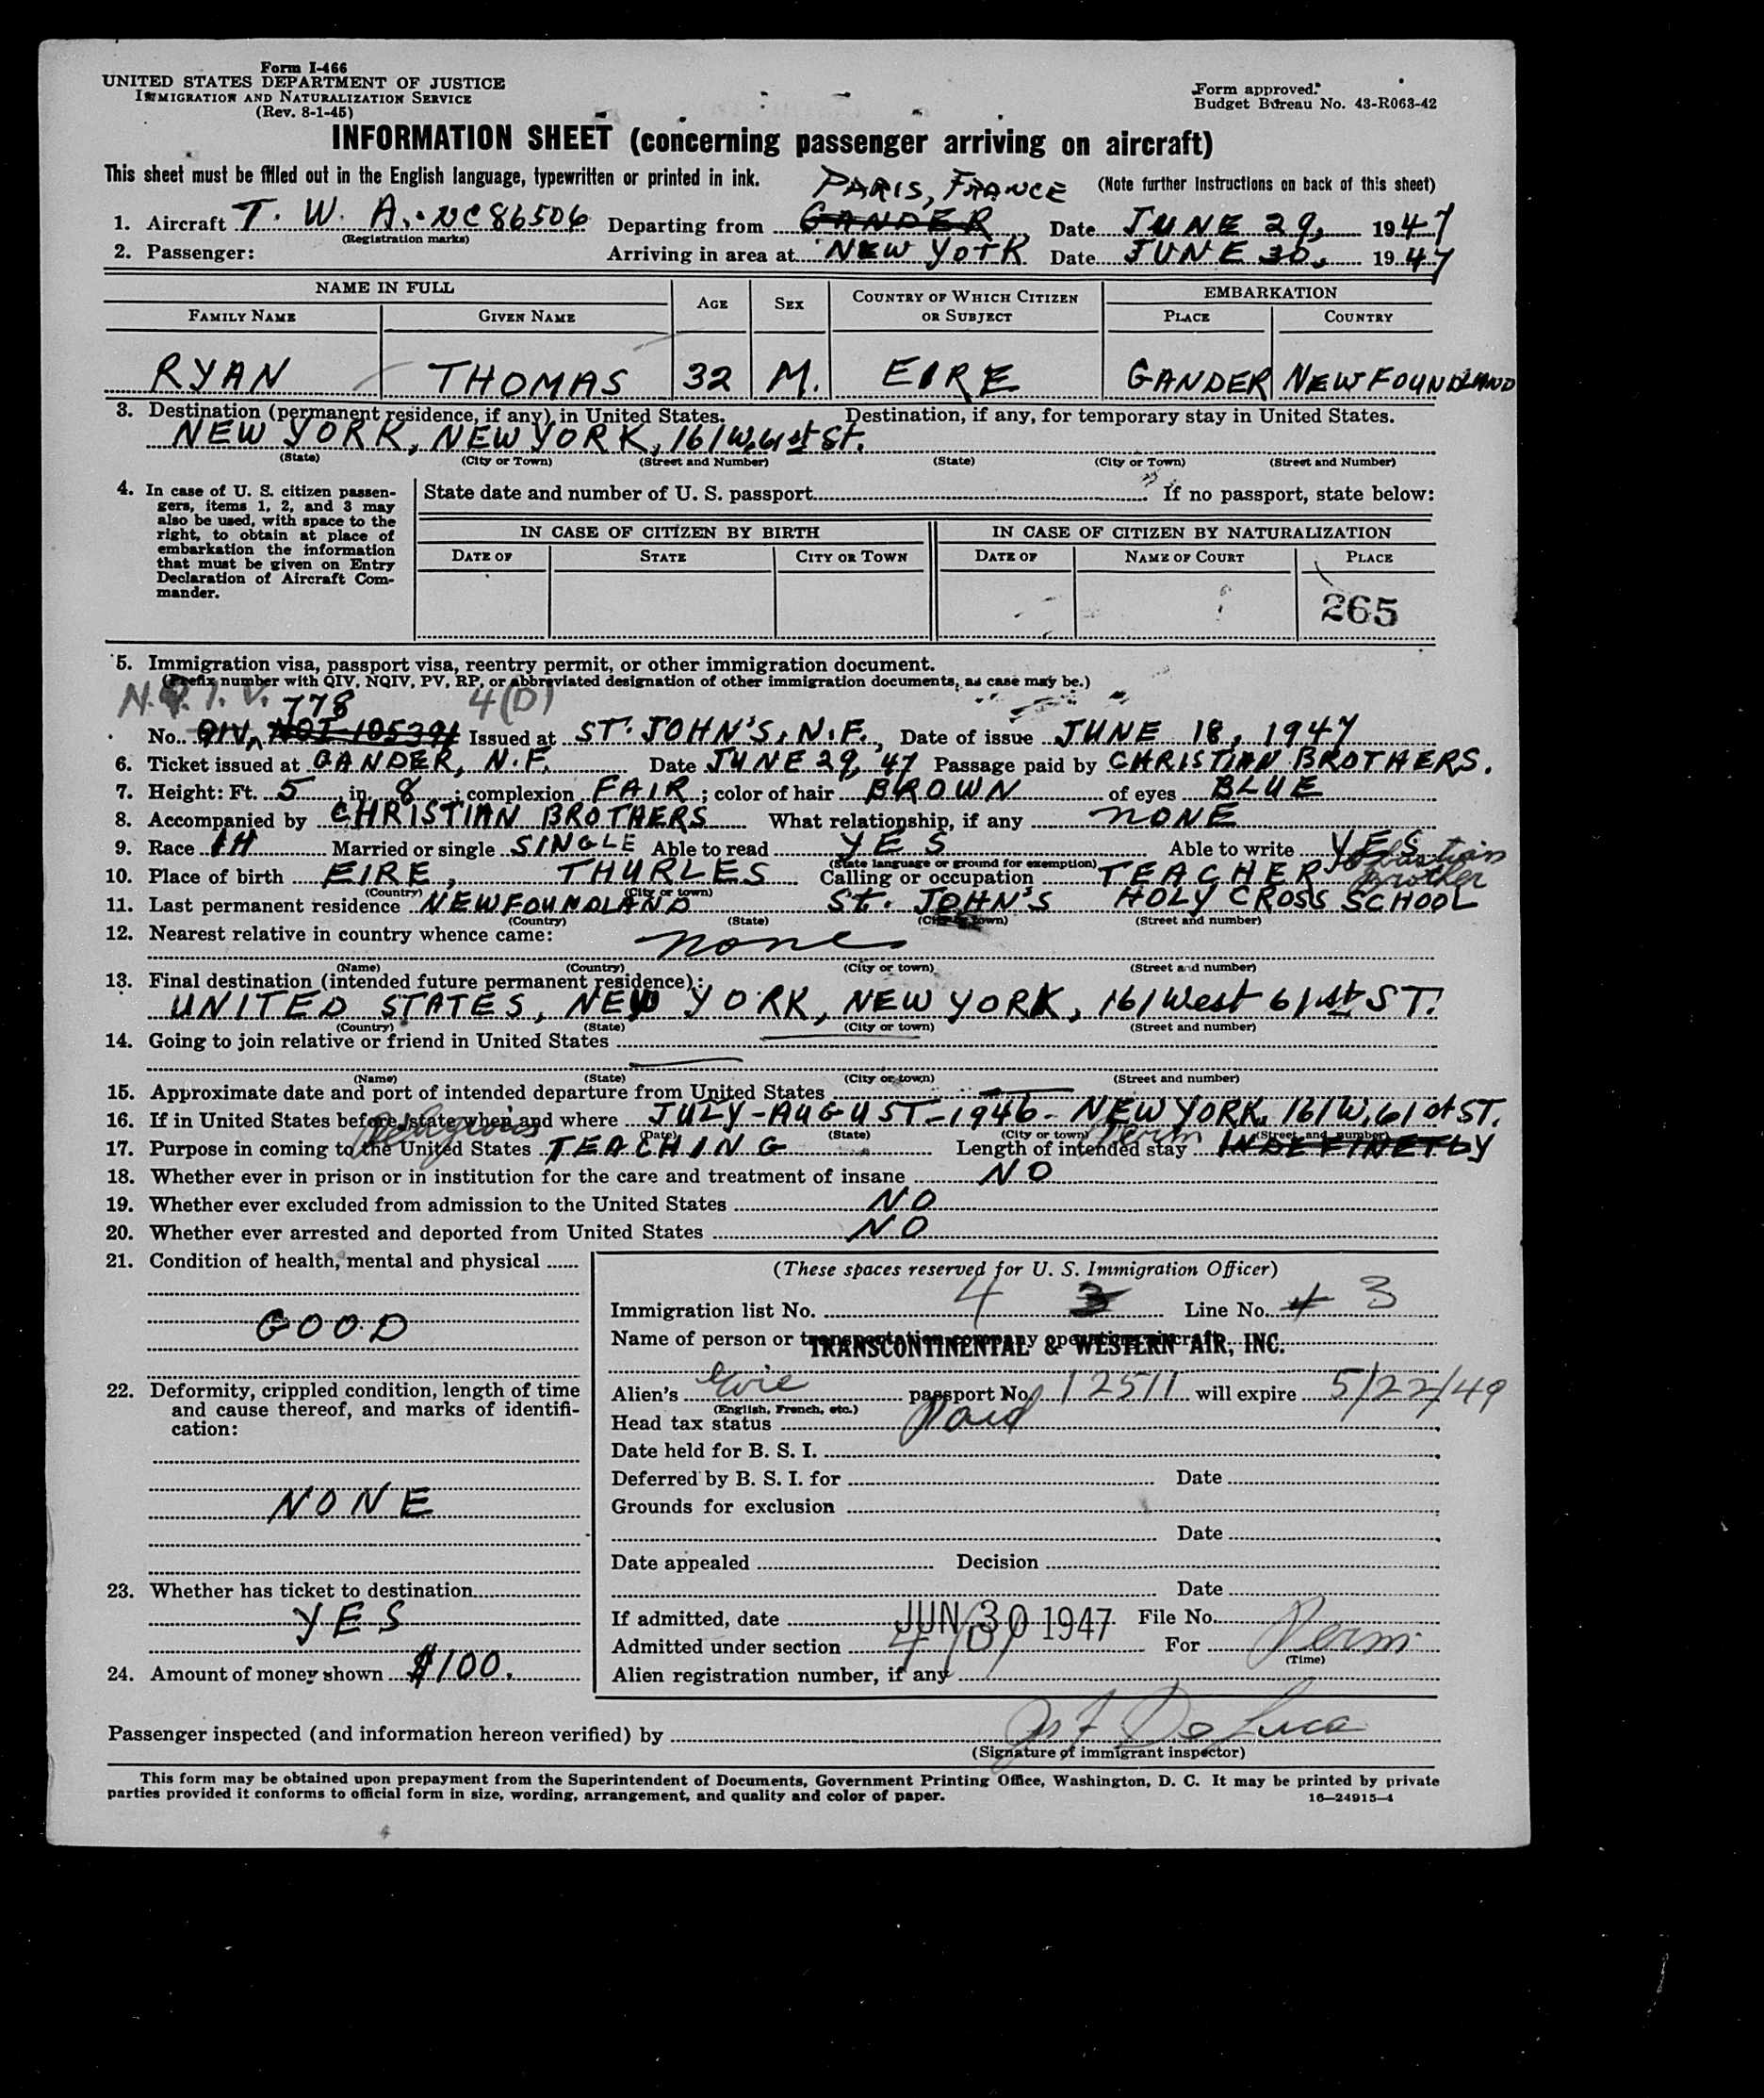 Form I-466
UNITED STATES DEPARTMENT OF JUSTICE
IMMIGRATION AND NATURALIZATION SERVICE
(Rev. 8-1-45)
Form approved.
Budget Bureau No. 43-R063-42
INFORMATION SHEET (concerning passenger arriving on aircraft)
This sheet must be filled out in the English language, typewritten or printed in ink.
(Note further instructions on back of this sheet)
PARIS, FRANCE
1. Aircraft T. W. A. NC86506 Departing from GANDER Date JUNE 29, 1947
(Registration marks)
2. Passenger: Arriving in area at NEW YORK Date JUNE 30, 1947
NAME IN FULL AGE SEX COUNTRY OF WHICH CITIZEN OR SUBJECT EMBARKATION
FAMILY NAME GIVEN NAME PLACE COUNTRY
RYAN THOMAS 32 M. EIRE GANDER NEWFOUNDLAND
3. Destination (permanent residence, if any) in United States. Destination, if any, for temporary stay in United States.
NEW YORK, NEW YORK, 161 W. 61st St.
(State) (City or Town) (Street and Number) (State) (City or Town) (Street and Number)
4. In case of U. S. citizen passen-
gers, items 1, 2, and 3 may
also be used, with space to the
right, to obtain at place of
embarkation the information
that must be given on Entry
Declaration of Aircraft Com-
mander.
State date and number of U. S. passport If no passport, state below:
IN CASE OF CITIZEN BY BIRTH IN CASE OF CITIZEN BY NATURALIZATION
DATE OF STATE CITY OR TOWN DATE OF NAME OF COURT PLACE
265
5. Immigration visa, passport visa, reentry permit, or other immigration document.
(Prefix number with QIV, NQIV, PV, RP, or abbreviated designation of other immigration documents, as case may be.)
N.Q.I.V. 778 4(D)
No. QIV, NOI-105391 Issued at ST. JOHN'S, N.F., Date of issue JUNE 18, 1947
6. Ticket issued at GANDER, N.F. Date JUNE 29, 47 Passage paid by CHRISTIAN BROTHERS.
7. Height: Ft. 5, in. 8; complexion FAIR; color of hair BROWN of eyes BLUE
8. Accompanied by CHRISTIAN BROTHERS What relationship, if any NONE
9. Race IH Married or single SINGLE Able to read YES Able to write YES
(State language or ground for exemption)
10. Place of birth EIRE, THURLES Calling or occupation TEACHER Christian Brother
(Country) (City or town)
11. Last permanent residence NEWFOUNDLAND ST. JOHN'S HOLY CROSS SCHOOL
(Country) (State) (City or town) (Street and number)
12. Nearest relative in country whence came: none
(Name) (Country) (City or town) (Street and number)
13. Final destination (intended future permanent residence):
UNITED STATES, NEW YORK, NEW YORK, 161 West 61st ST.
(Country) (State) (City or town) (Street and number)
14. Going to join relative or friend in United States
(Name) (State) (City or town) (Street and number)
15. Approximate date and port of intended departure from United States
16. If in United States before, state when and where JULY-AUGUST-1946- NEW YORK, 161 W. 61 st ST.
(Date) (State) (City or town) (Street and number)
Religious Perm
17. Purpose in coming to the United States TEACHING Length of intended stay INDEFINETLY
18. Whether ever in prison or in institution for the care and treatment of insane NO
19. Whether ever excluded from admission to the United States NO
20. Whether ever arrested and deported from United States NO
21. Condition of health, mental and physical
GOOD
22. Deformity, crippled condition, length of time
and cause thereof, and marks of identifi-
cation:
NONE
23. Whether has ticket to destination
YES
24. Amount of money shown $100.
(These spaces reserved for U. S. Immigration Officer)
Immigration list No. 4 3 Line No. 4 3
Name of person or transportation company operating aircraft
TRANSCONTINENTAL & WESTERN AIR, INC.
Alien's Eire passport No. 12511 will expire 5/22/49
(English, French, etc.)
Head tax status Paid
Date held for B. S. I.
Deferred by B. S. I. for Date
Grounds for exclusion
Date
Date appealed Decision
Date
If admitted, date JUN 30 1947 File No.
Admitted under section 4 (D) For Perm
(Time)
Alien registration number, if any
Passenger inspected (and information hereon verified) by De Luca
(Signature of immigrant inspector)
This form may be obtained upon prepayment from the Superintendent of Documents, Government Printing Office, Washington, D. C. It may be printed by private
parties provided it conforms to official form in size, wording, arrangement, and quality and color of paper.
16—24915-4